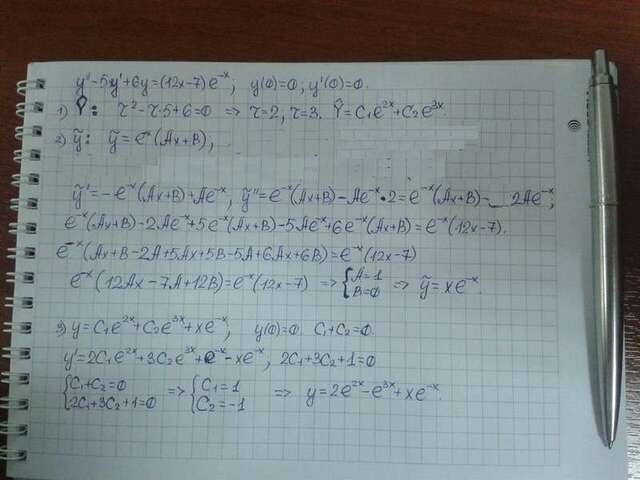 y''-5y'+6y=(12x-7)e^{-x}; y(0)=0, y'(0)=0.
1) Ŷ: r²-r·5+6=0 => r=2, r=3. Ŷ=C₁e^{2x}+C₂e^{3x}.
2) ỹ: ỹ=e^{-x}(Ax+B),
ỹ'=-e^{-x}(Ax+B)+Ae^{-x}, ỹ''=e^{-x}(Ax+B)-Ae^{-x}·2=e^{-x}(Ax+B)-_ 2Ae^{-x};
e^{-x}(Ax+B)-2Ae^{-x}+5e^{-x}(Ax+B)-5Ae^{-x}+6e^{-x}(Ax+B)=e^{-x}(12x-7).
e^{-x}(Ax+B-2A+5Ax+5B-5A+6Ax+6B)=e^{-x}(12x-7)
e^{-x}(12Ax-7A+12B)=e^{-x}(12x-7) => {A=1 B=0 => ỹ=xe^{-x}.
3) y=C₁e^{2x}+C₂e^{3x}+xe^{-x}; y(0)=0. C₁+C₂=0.
y'=2C₁e^{2x}+3C₂e^{3x}+e^{-x}-xe^{-x}, 2C₁+3C₂+1=0
{C₁+C₂=0 2C₁+3C₂+1=0 => {C₁=1 C₂=-1 => y=2e^{2x}-e^{3x}+xe^{-x}.